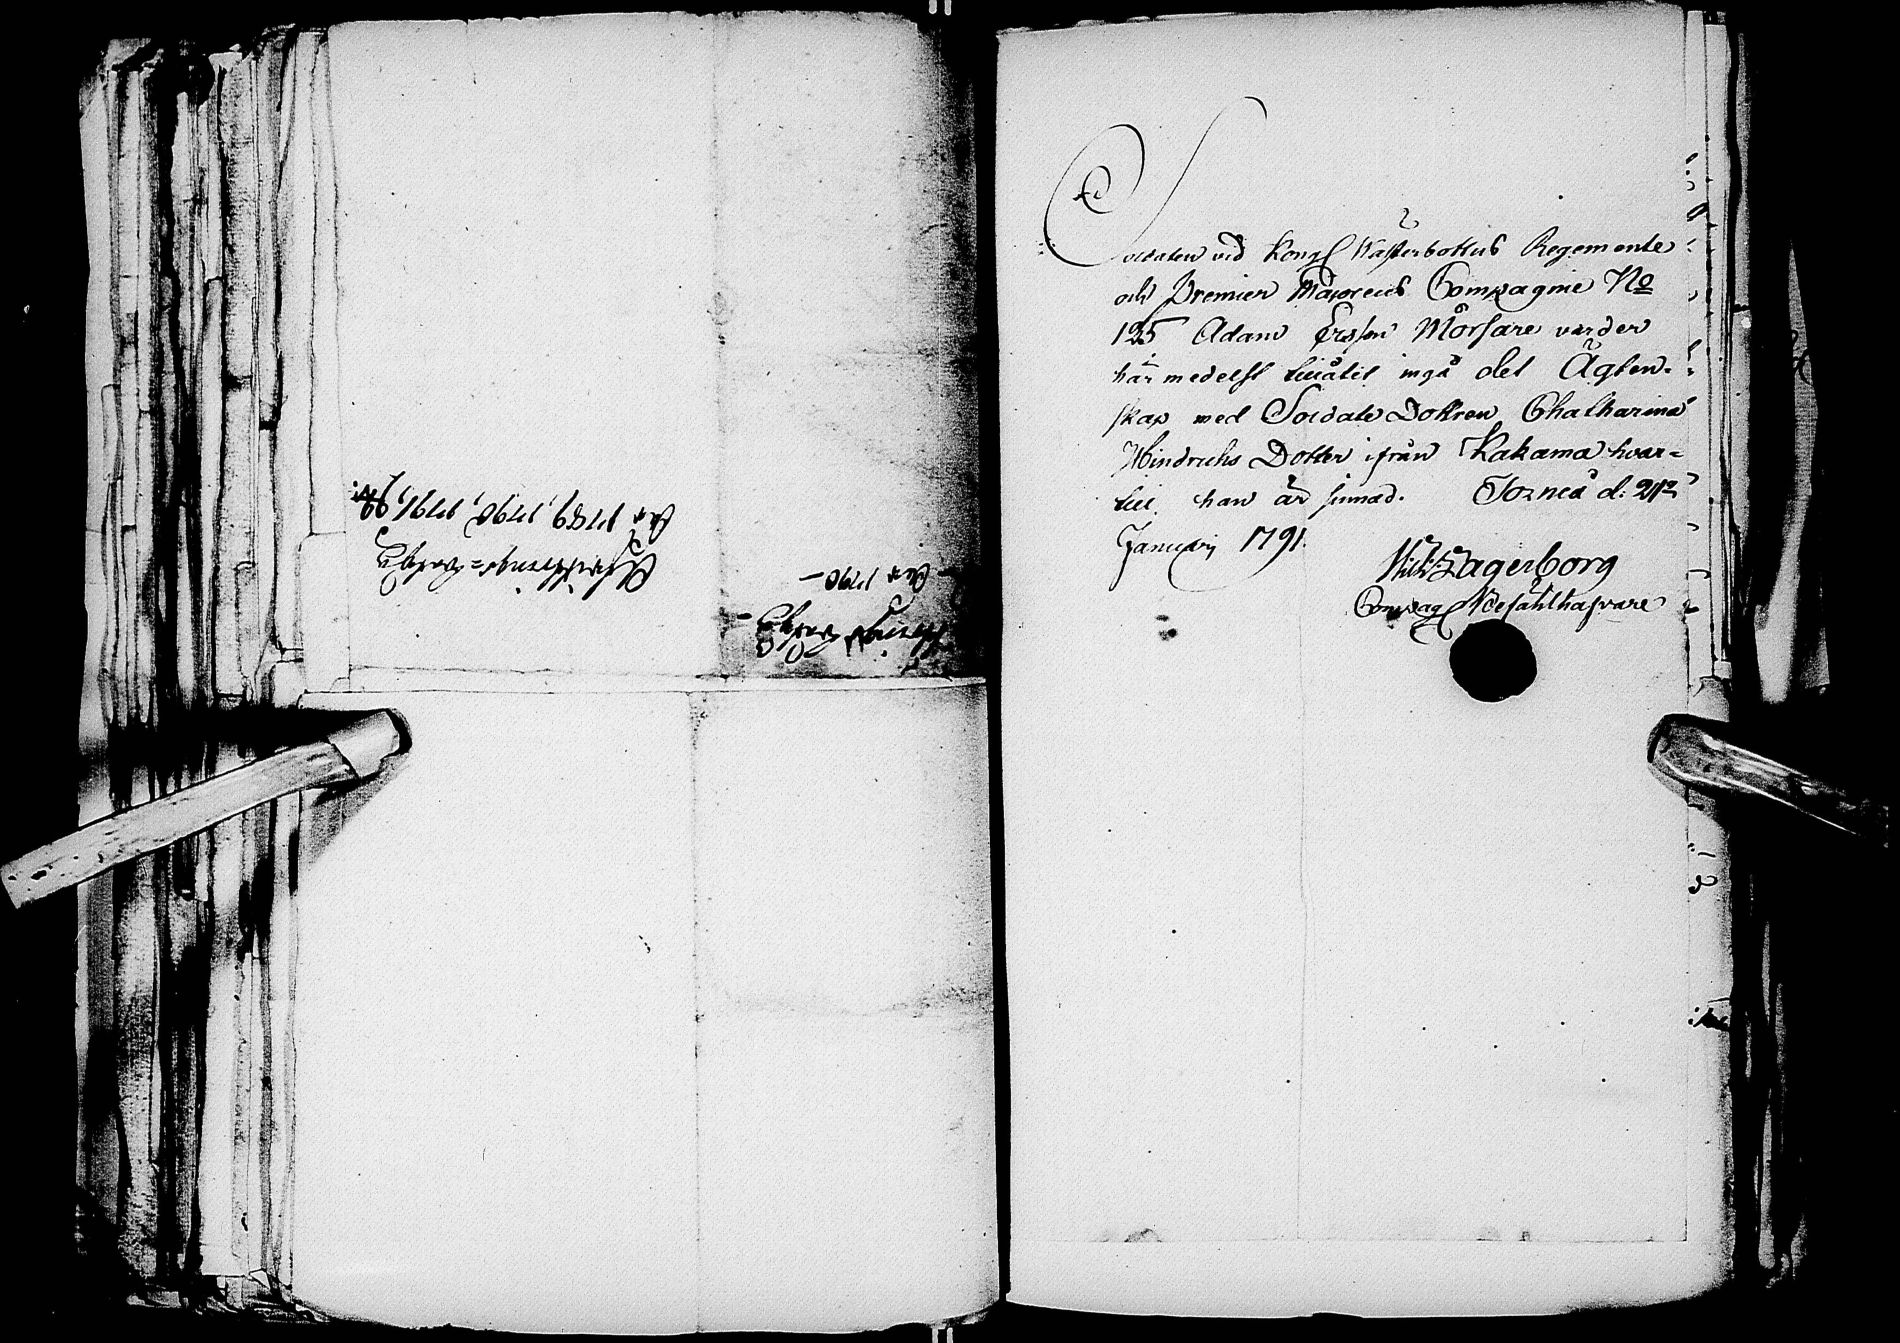 Soldaten vid Kongl Wästerbottns Regemente
och Premier Majorens Compagnie No
125 Adam Ersson Morfare varder
härmedelst tillåtit ingå det Ägten-
skap med Soldate Dottren Chatharina
Hindrichs Dotter ifrån Kakama hvar-
till han är sinnad. Torneå d: 21
Januarij 1791.
Lagerborg
Compag Befählhafvare
åra 1789, 1790, 1791,
åra 1790